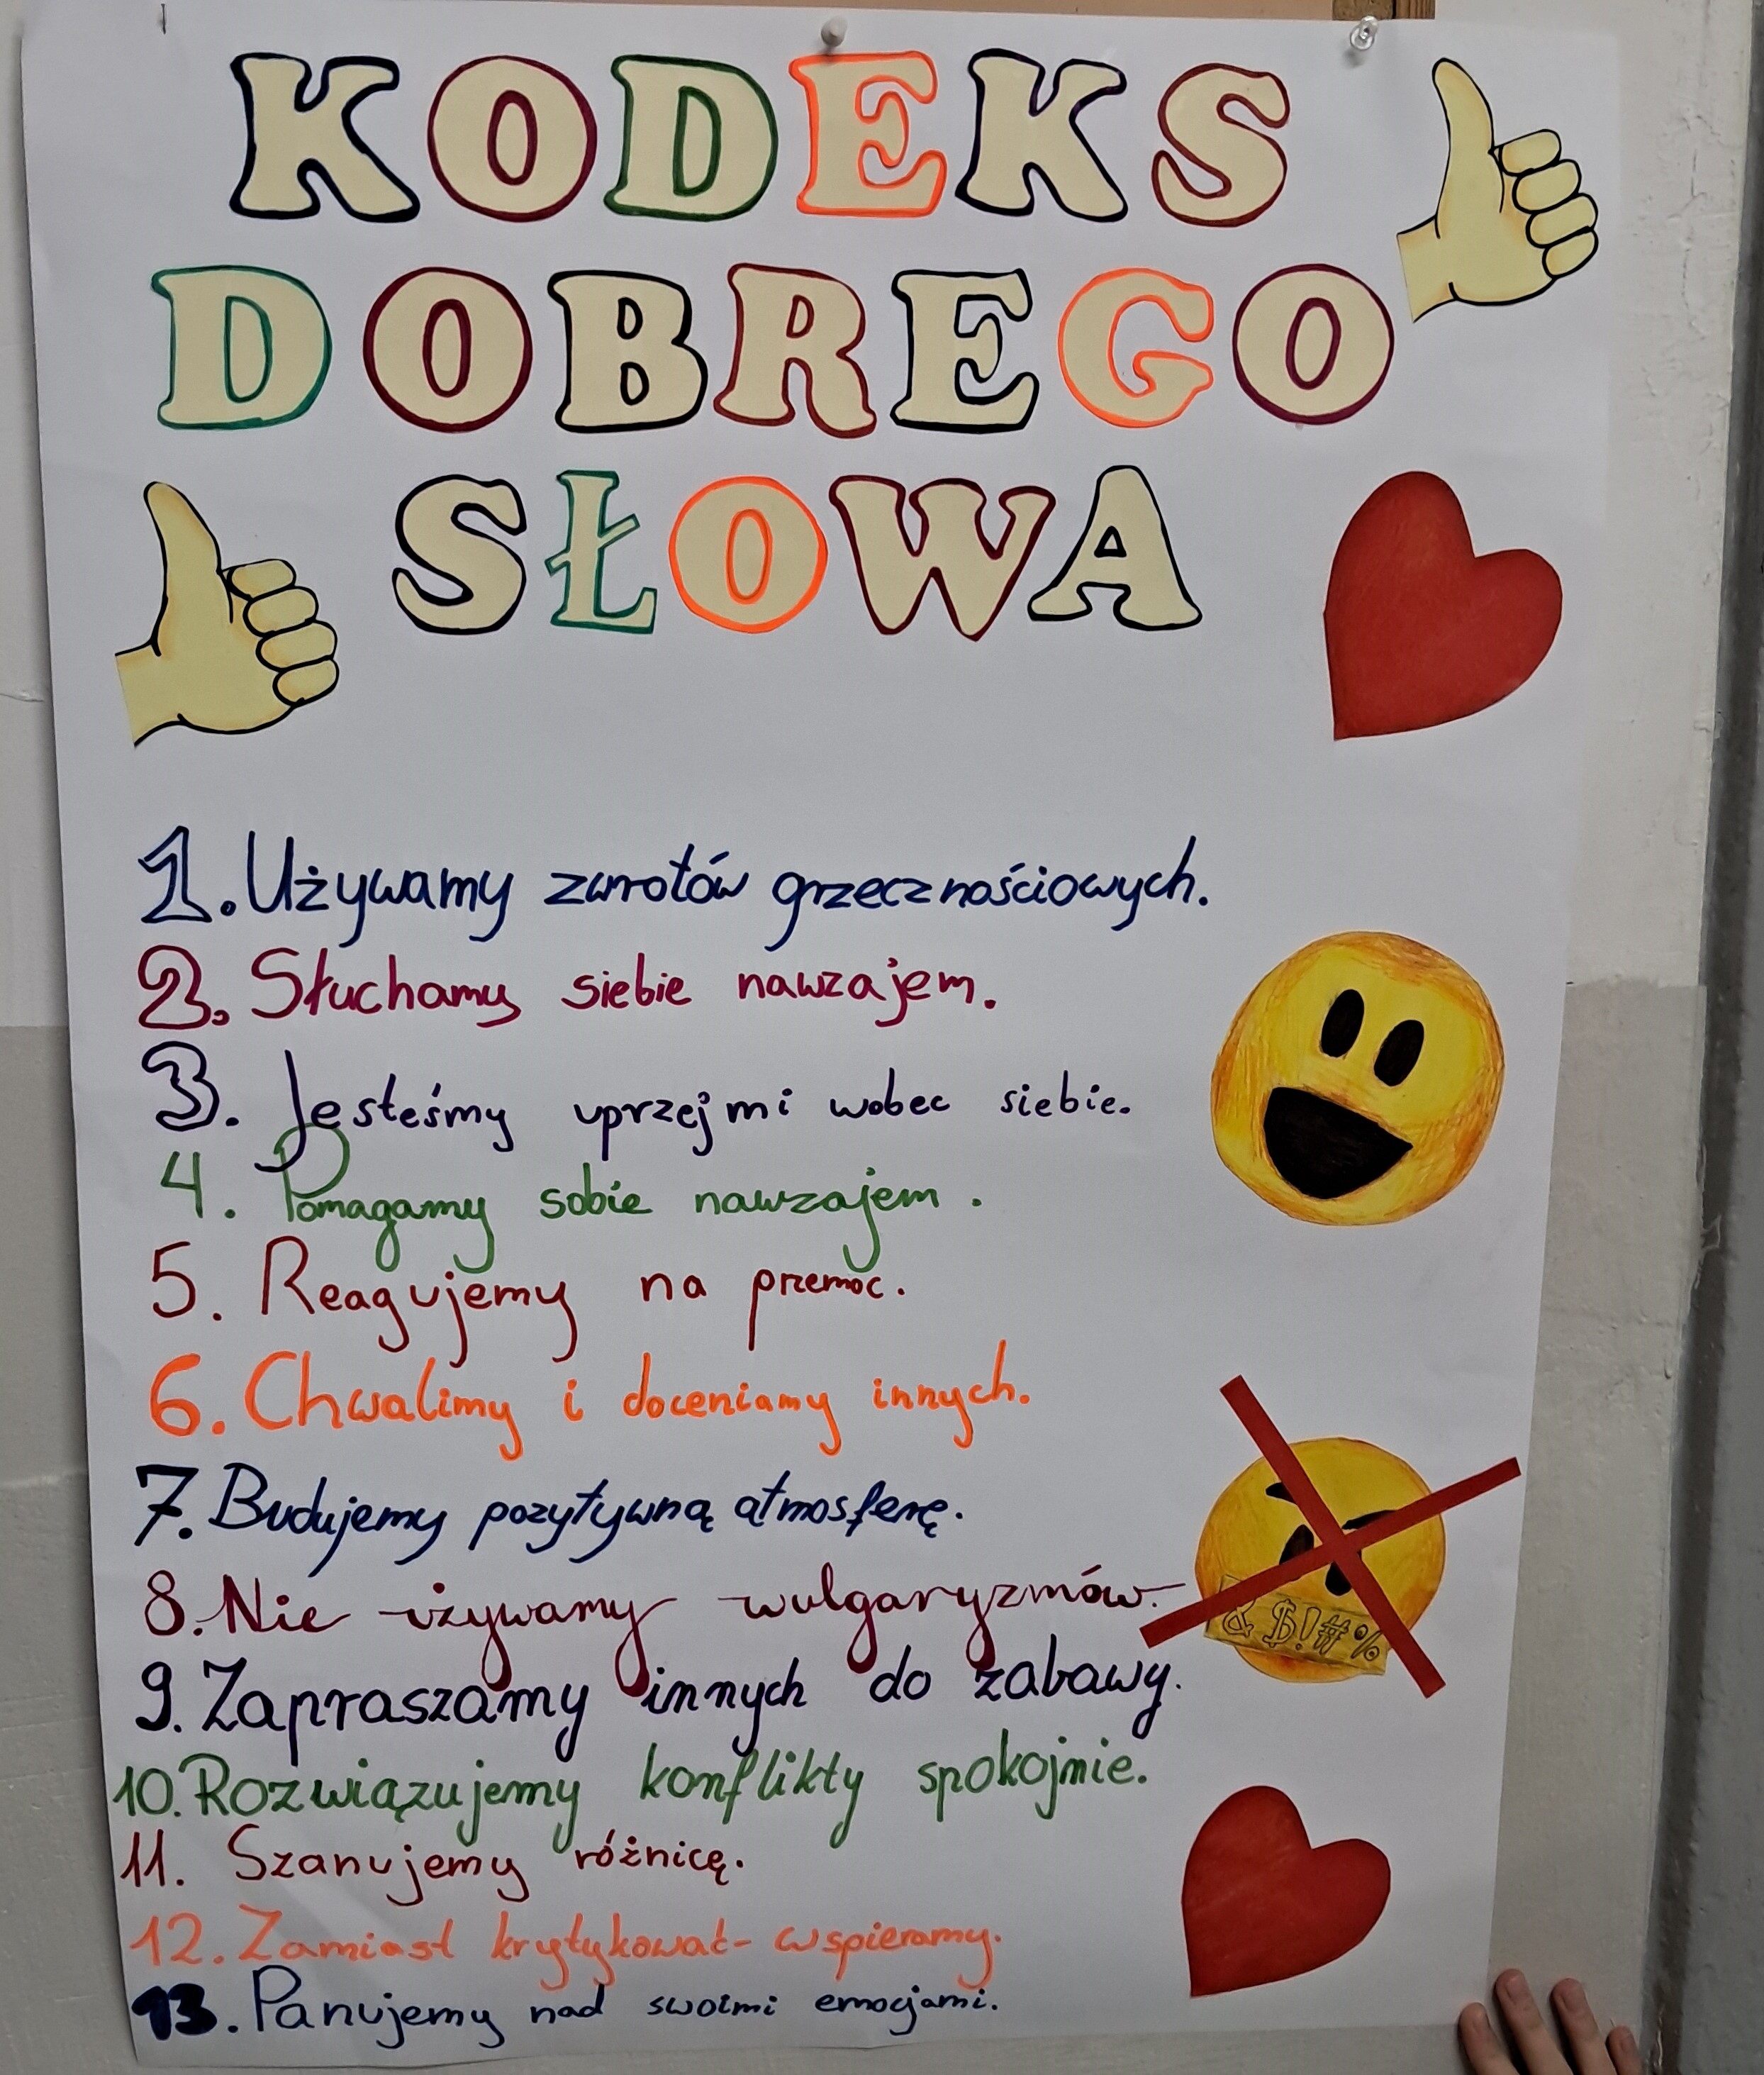 KODEKS
DOBREGO
SŁOWA
1. Używamy zwrotów grzecznościowych.
2. Słuchamy siebie nawzajem.
3. Jesteśmy uprzejmi wobec siebie.
4. Pomagamy sobie nawzajem.
5. Reagujemy na przemoc.
6. Chwalimy i doceniamy innych.
7. Budujemy pozytywną atmosferę.
8. Nie używamy wulgaryzmów.
& $!#%
9. Zapraszamy innych do zabawy.
10. Rozwiązujemy konflikty spokojnie.
11. Szanujemy różnicę.
12. Zamiast krytykować- wspieramy.
13. Panujemy nad swoimi emocjami.